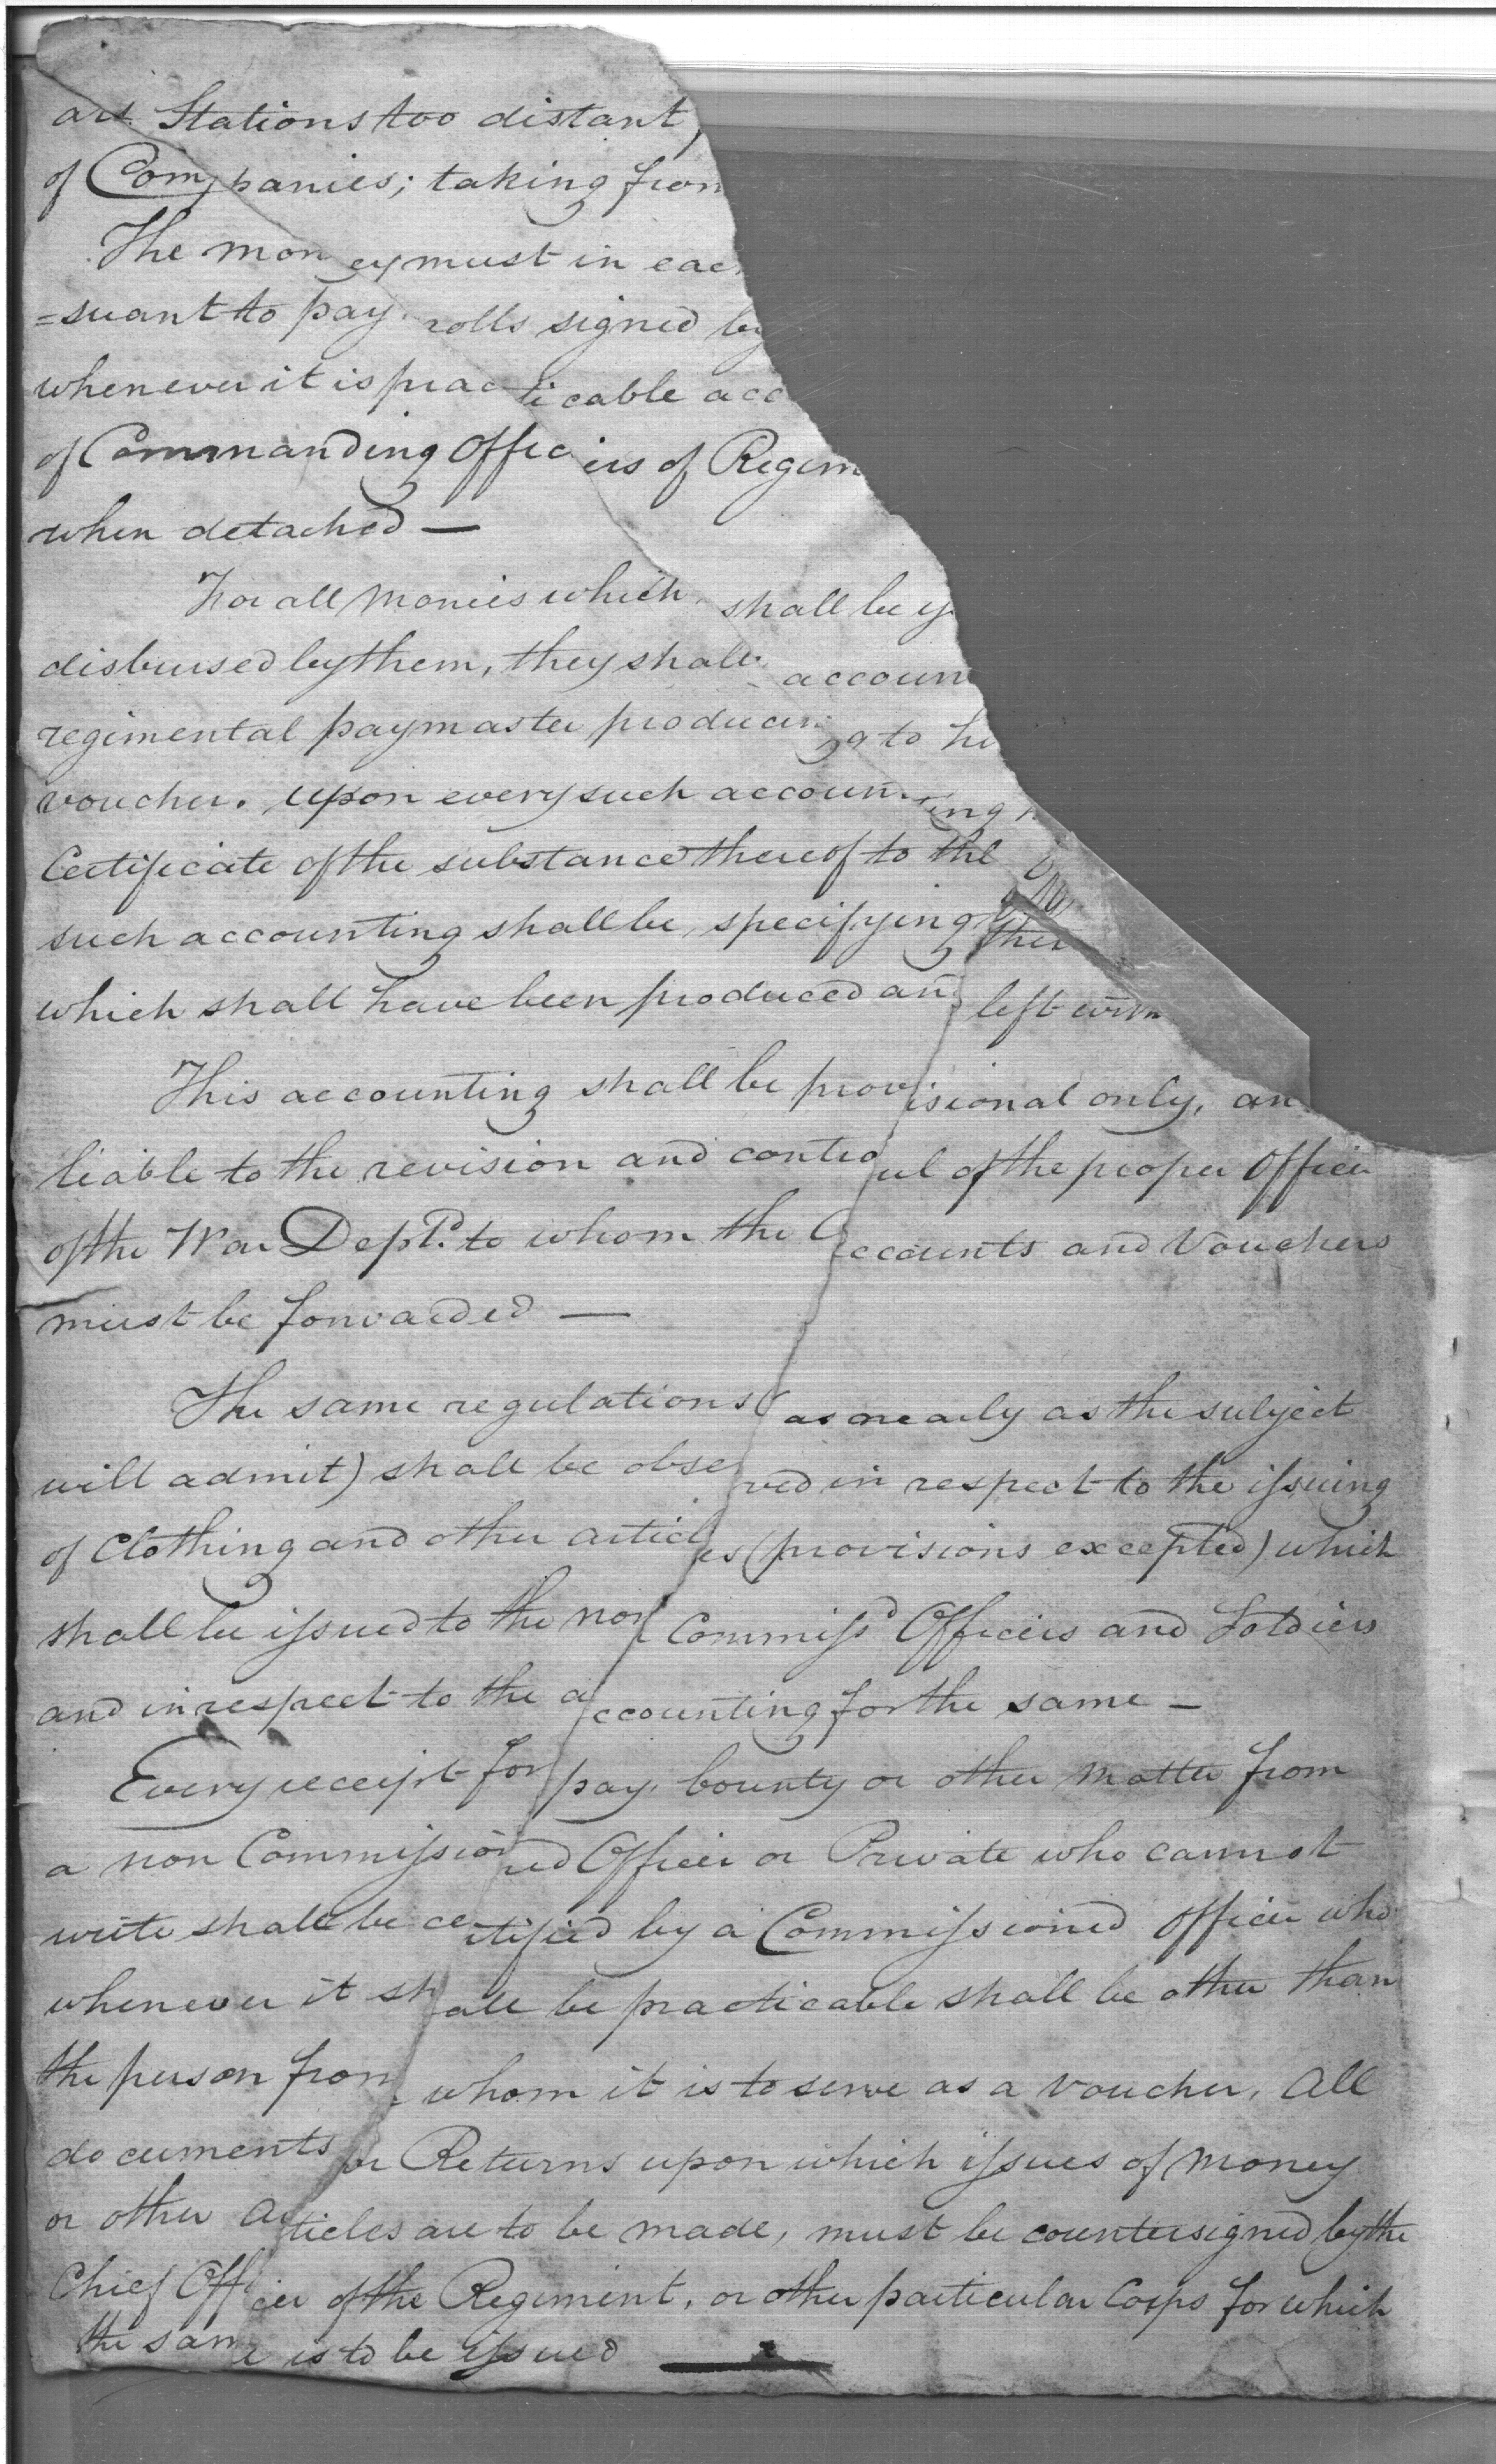 are Stations too distant,
of Companies; taking from
The money must in eac
=suant to pay rolls signed by
whenever it is practicable acc
of Commanding Officers of Regim
when detached —
For all Monies which shall be
disbursed by them, they shall accoun
regimental paymaster producing to hi
voucher. Upon every such accounting
Certificate of the substance thereof to the
such accounting shall be, specifying the
which shall have been produced and left with
This accounting shall be provisional only, an
liable to the revision and controul of the proper Officer
of the War Dept. to whom the Accounts and Vouchers
must be forwarded —
The same regulations (as nearly as the subject
will admit) shall be observed in respect to the issuing
of Clothing and other articles (provisions excepted) which
shall be issued to the non Commissd Officers and Soldiers
and in respect to the accounting for the same —
Every receipt for pay, bounty or other matter from
a non Commissioned Officer or Private who cannot
write shall be certified by a Commissioned Officer who
whenever it shall be practicable shall be other than
the person from whom it is to serve as a voucher. All
documents or Returns upon which issues of money
or other Articles are to be made, must be countersigned by the
Chief Officer of the Regiment, or other particular Corps for which
the same is to be issued —